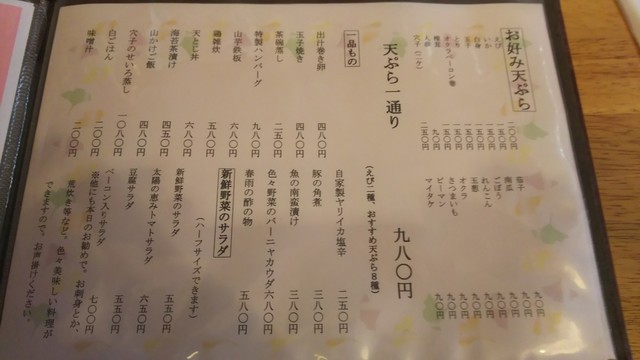 お好み天ぷら
えび 二〇〇円
いか 一五〇円
白身 一五〇円
玉子 一五〇円
とり
オクラベーコン巻
椎茸
人参
穴子（一ケ） 二五〇円
茄子 九〇円
南瓜 九〇円
ごぼう 九〇円
れんこん 九〇円
玉葱 九〇円
オクラ 九〇円
さつまいも 九〇円
ピーマン 九〇円
マイタケ 九〇円
天ぷら一通り 九八〇円
（えび二種、おすすめ天ぷら８種）
一品もの
出汁巻き卵 四八〇円
玉子焼き 四八〇円
茶碗蒸し 二五〇円
特製ハンバーグ 九八〇円
山芋鉄板 六八〇円
鶏雑炊 五八〇円
天とじ丼 六八〇円
海苔茶漬け 四五〇円
山かけご飯 四八〇円
穴子のせいろ蒸し 一〇八〇円
白ごはん 二〇〇円
味噌汁 二〇〇円
自家製ヤリイカ塩辛 二五〇円
豚の角煮 三八〇円
魚の南蛮漬け 三八〇円
色々野菜のバーニャカウダ 六八〇円
春雨の酢の物 五八〇円
新鮮野菜のサラダ
（ハーフサイズできます）
新鮮野菜のサラダ 五五〇円
太陽の恵みトマトサラダ 六五〇円
豆腐サラダ 五五〇円
ベーコン入りサラダ 七〇〇円
※他にも本日のお勧めで。お刺身とか、
荒炊き等など。色々美味しい料理が
できますので。お声掛けください。